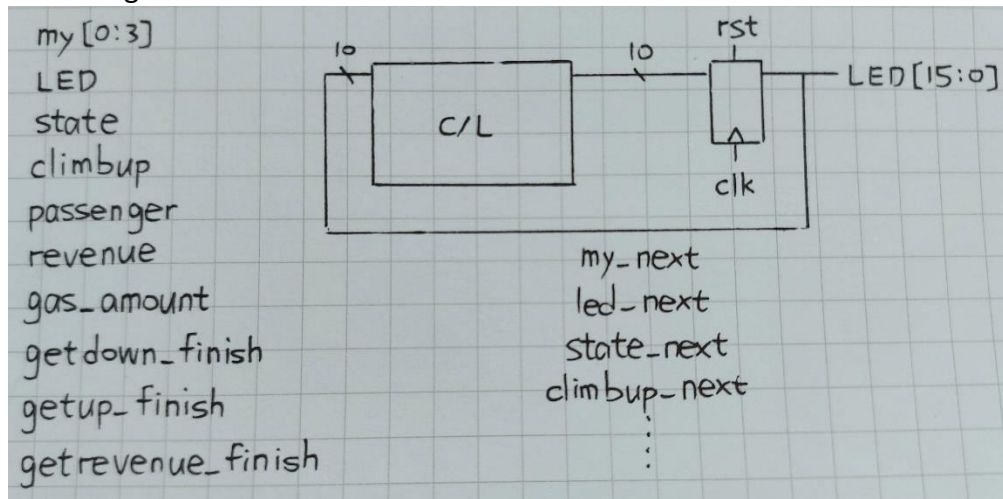 my [0:3]
LED
state
climbup
passenger
revenue
gas_amount
getdown_finish
getup_finish
getrevenue_finish
10
C/L
10
rst
clk
LED[15:0]
my_next
led_next
state_next
climbup_next